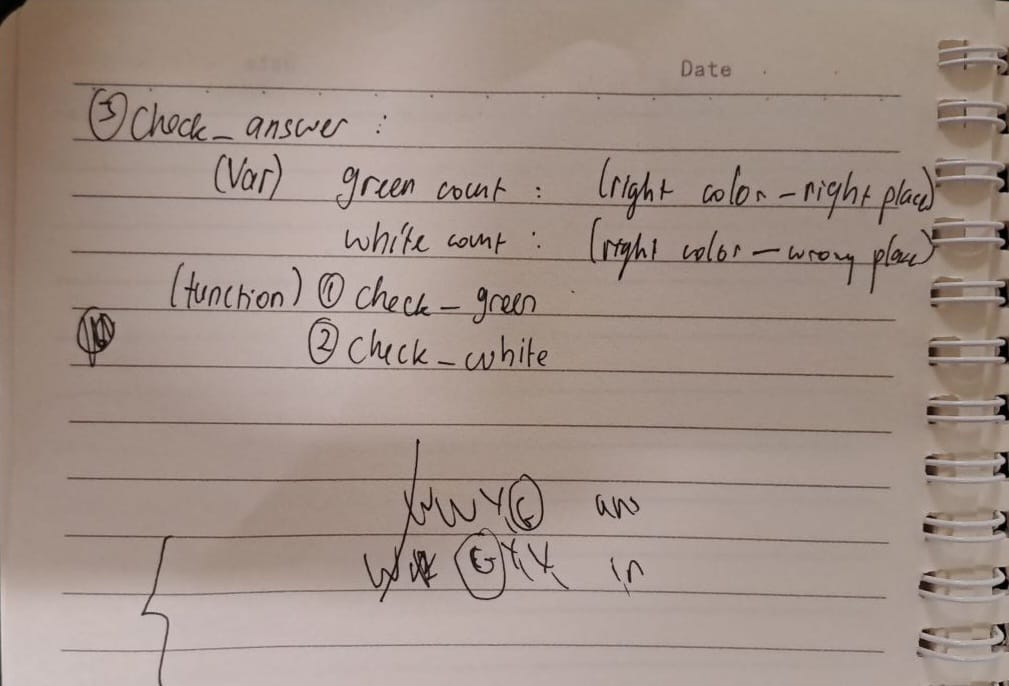 Date
③ Check_answer :
(Var) green count : (right color - right place)
white count : (right color - wrong place)
(function) ① check_green
② check_white
W W Y G ans
W G Y Y in